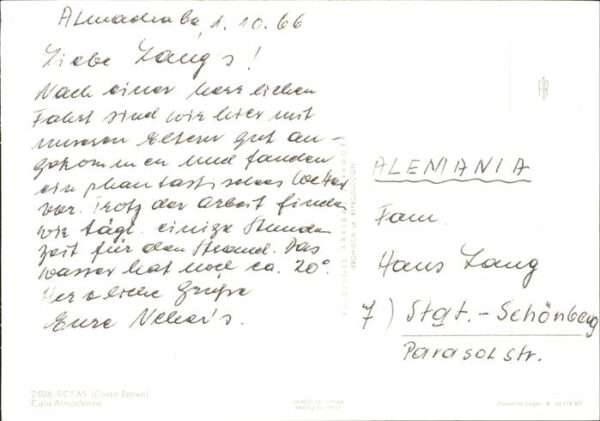 Almadraba, 1.10.66
Liebe Lang's!
Nach einer herrlichen
Fahrt sind wir hier mit
unseren Eltern gut an-
gekommen und fanden
ein phantastisches Wetter
vor. Trotz der Arbeit finden
wir tägl. einige Stunden
Zeit für den Strand. Das
Wasser hat noch ca. 20°.
Herzliche Grüße
Eure
ALEMANIA
Fam.
Hans Lang
7) Stgt.-Schönberg
Parasolstr.
ROSAS (Costa Brava)